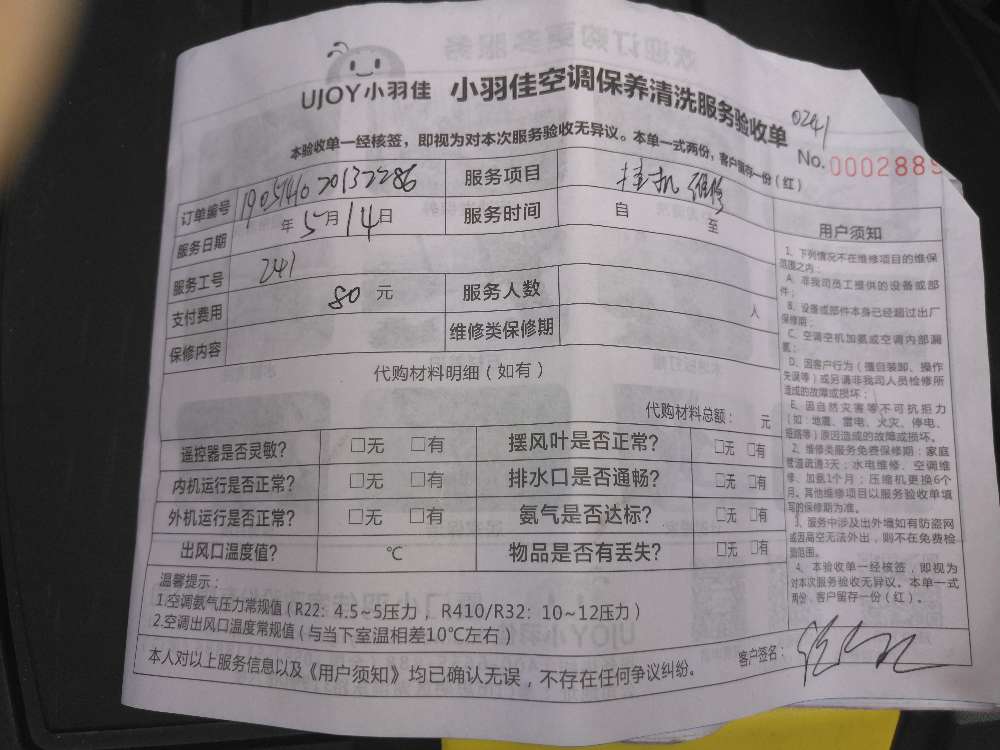 UJOY小羽佳 小羽佳空调保养清洗服务验收单
0241
本验收单一经核签，即视为对本次服务验收无异议。本单一式两份，客户留存一份（红）
No.0002889
订单编号 1905141020132286 服务项目 挂机 维修
服务日期 年5月14日 服务时间 自 至
服务工号 241
支付费用 80 元 服务人数 人
保修内容 维修类保修期
代购材料明细（如有）
代购材料总额： 元
遥控器是否灵敏? □无 □有 摆风叶是否正常? □无 □有
内机运行是否正常? □无 □有 排水口是否通畅? □无 □有
外机运行是否正常? □无 □有 氨气是否达标? □无 □有
出风口温度值? ℃ 物品是否有丢失? □无 □有
温馨提示：
1.空调氨气压力常规值（R22：4.5~5压力，R410/R32：10~12压力）
2.空调出风口温度常规值（与当下室温相差10℃左右）
本人对以上服务信息以及《用户须知》均已确认无误，不存在任何争议纠纷。
客户签名：
用户须知
1、下列情况不在维修项目的维保
范围之内：
A、非我司员工提供的设备或部
件；
B、设备或部件本身已经超过出厂
保修期；
C、空调空机加氨或空调内部漏
氨；
D、因客户行为（擅自装卸、操作
失误等）或另请非我司人员检修所
造成的故障或损坏；
E、因自然灾害等不可抗拒力
（如：地震、雷电、火灾、停电、
短路等）原因造成的故障或损坏。
2、维修类服务免费保修期：家庭
管道疏通3天；水电维修、空调维
修、加氨1个月；压缩机更换6个
月。其他维修项目以服务验收单填
写的保修期为准。
3、服务中涉及出外墙如有防盗网
或因高空无法外出，则不在免费检
测范围。
4、本验收单一经核签，即视为
对本次服务验收无异议。本单一式
两份，客户留存一份（红）。